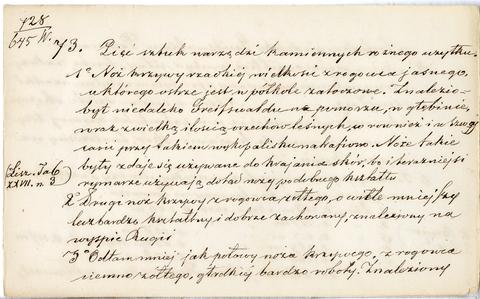 728
645 W.
73. Pięć sztuk narzędzi kamiennych rożnego użytku.
1° Nóż krzywy rzadkiéj wielkości z rogowca jasnego,
u którego ostrze jest w półkole zatoczone. Znalezio-
ny był niedaleko Greifswaldu na pomorzu, w głębinie,
wraz z wielką ilością orzechów leśnych, co również i w Szwaj
carii przy takiem wykopalisku natrafiono. Noże takie
były zdaje się używane do krajania skór, bo i teraźniejsi
rymarze używają dotąd noży podobnego kształtu
Lisz. Tab
XXVII. n 3
2 Drugi nóż krzywy z rogowca żółtego, o wiele mniejszy
lecz bardzo kształtny i dobrze zachowany, znaleziony na
wyspie Rugii
3° Odłam mniej jak połowy noża krzywego, z rogowca
ciemno żółtego, gładkiej bardzo roboty. Znaleziony